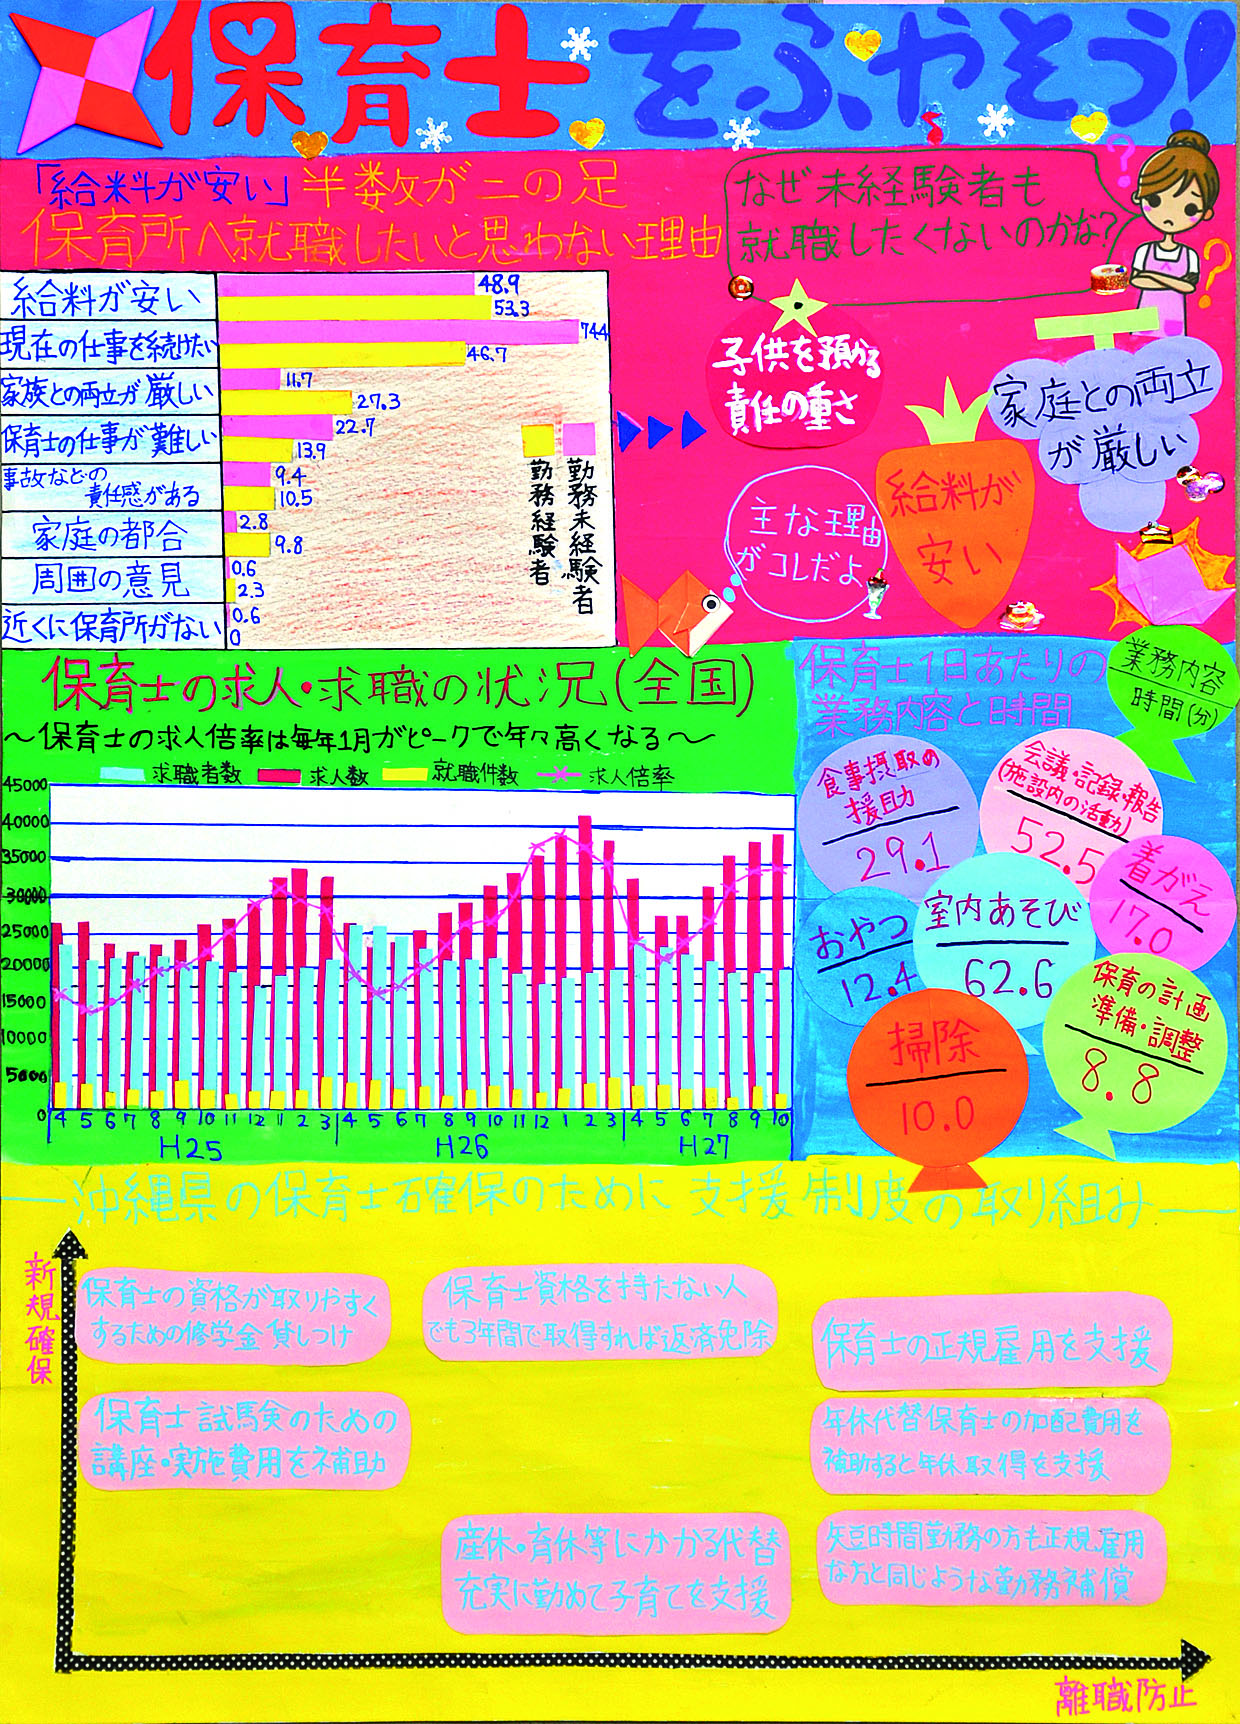 保育士をふやそう!
「給料が安い」半数が二の足
保育所へ就職したいと思わない理由
なぜ未経験者も
就職したくないのかな?
?
?
給料が安い 48.9
53.3
現在の仕事を続けたい 74.4
46.7
家族との両立が厳しい 11.7
27.3
保育士の仕事が難しい 22.7
13.9
事故などの
責任感がある 9.4
10.5
家庭の都合 2.8
9.8
周囲の意見 0.6
2.3
近くに保育所がない 0.6
0
勤務経験者
勤務未経験者
子供を預かる
責任の重さ
家庭との両立
が厳しい
給料が
安い
主な理由
がコレだよ
保育士の求人・求職の状況(全国)
〜保育士の求人倍率は毎年1月がピークで年々高くなる〜
求職者数 求人数 就職件数 求人倍率
45000
40000
35000
30000
25000
20000
15000
10000
5000
0
4 5 6 7 8 9 10 11 12 1 2 3 4 5 6 7 8 9 10 11 12 1 2 3 4 5 6 7 8 9 10
H25 H26 H27
保育士1日あたりの
業務内容と時間
業務内容
時間(分)
食事摂取の
援助
29.1
会議・記録・報告
(施設内の活動)
52.5
着がえ
17.0
おやつ
12.4
室内あそび
62.6
保育の計画
準備・調整
8.8
掃除
10.0
沖縄県の保育士確保のために支援制度の取り組み
新規確保
保育士の資格が取りやすく
するための修学金貸しつけ
保育士資格を持たない人
でも3年間で取得すれば返済免除
保育士の正規雇用を支援
保育士試験のための
講座・実施費用を補助
年休代替保育士の加配費用を
補助すると年休取得を支援
産休・育休等にかかる代替
充実に勤めて子育てを支援
短時間勤務の方も正規雇用
な方と同じような勤務補償
離職防止